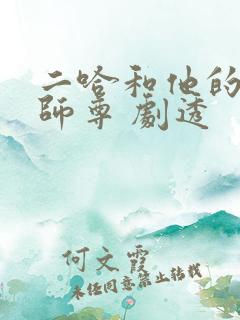 二哈和他的
師尊 劇透
何文霞
未经同意禁止转载